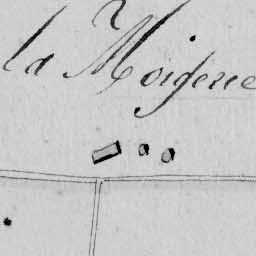 la Moiserie